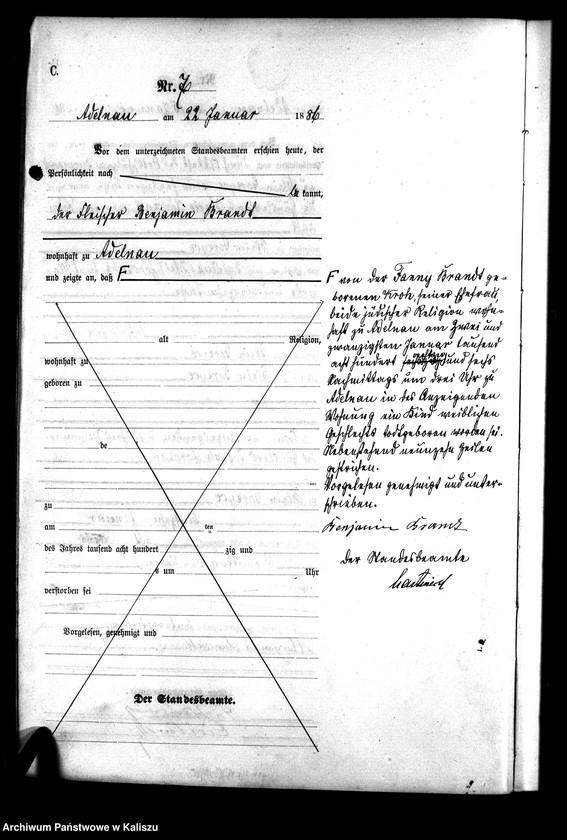 C.
Nr. 7
Adelnau am 22 Januar 1886
Vor dem unterzeichneten Standesbeamten erschien heute, der
Persönlichkeit nach
kannt,
der Fleischer Benjamin Brandt
wohnhaft zu Adelnau
und zeigte an, daß F
alt Religion,
wohnhaft zu
geboren zu
de
zu
am ten
des Jahres tausend acht hundert zig und
s um Uhr
verstorben sei
Vorgelesen, genehmigt und
Der Standesbeamte.
F von der Fanny Brandt ge-
borenen Kroh, seiner Ehefrau,
beide jüdischer Religion wohn-
haft zu Adelnau am Zwei und
zwanzigsten Januar tausend
acht hundert achtzig und sechs
Nachmittags um drei Uhr zu
Adelnau in des Anzeigenden
Wohnung ein Kind weiblichen
Geschlechts todtgeboren worden sei.
Nebenstehend neunzehn Zeilen
gestrichen.
Vorgelesen genehmigt und unter-
schrieben.
Benjamin Brandt
Der Standesbeamte
Archiwum Państwowe w Kaliszu